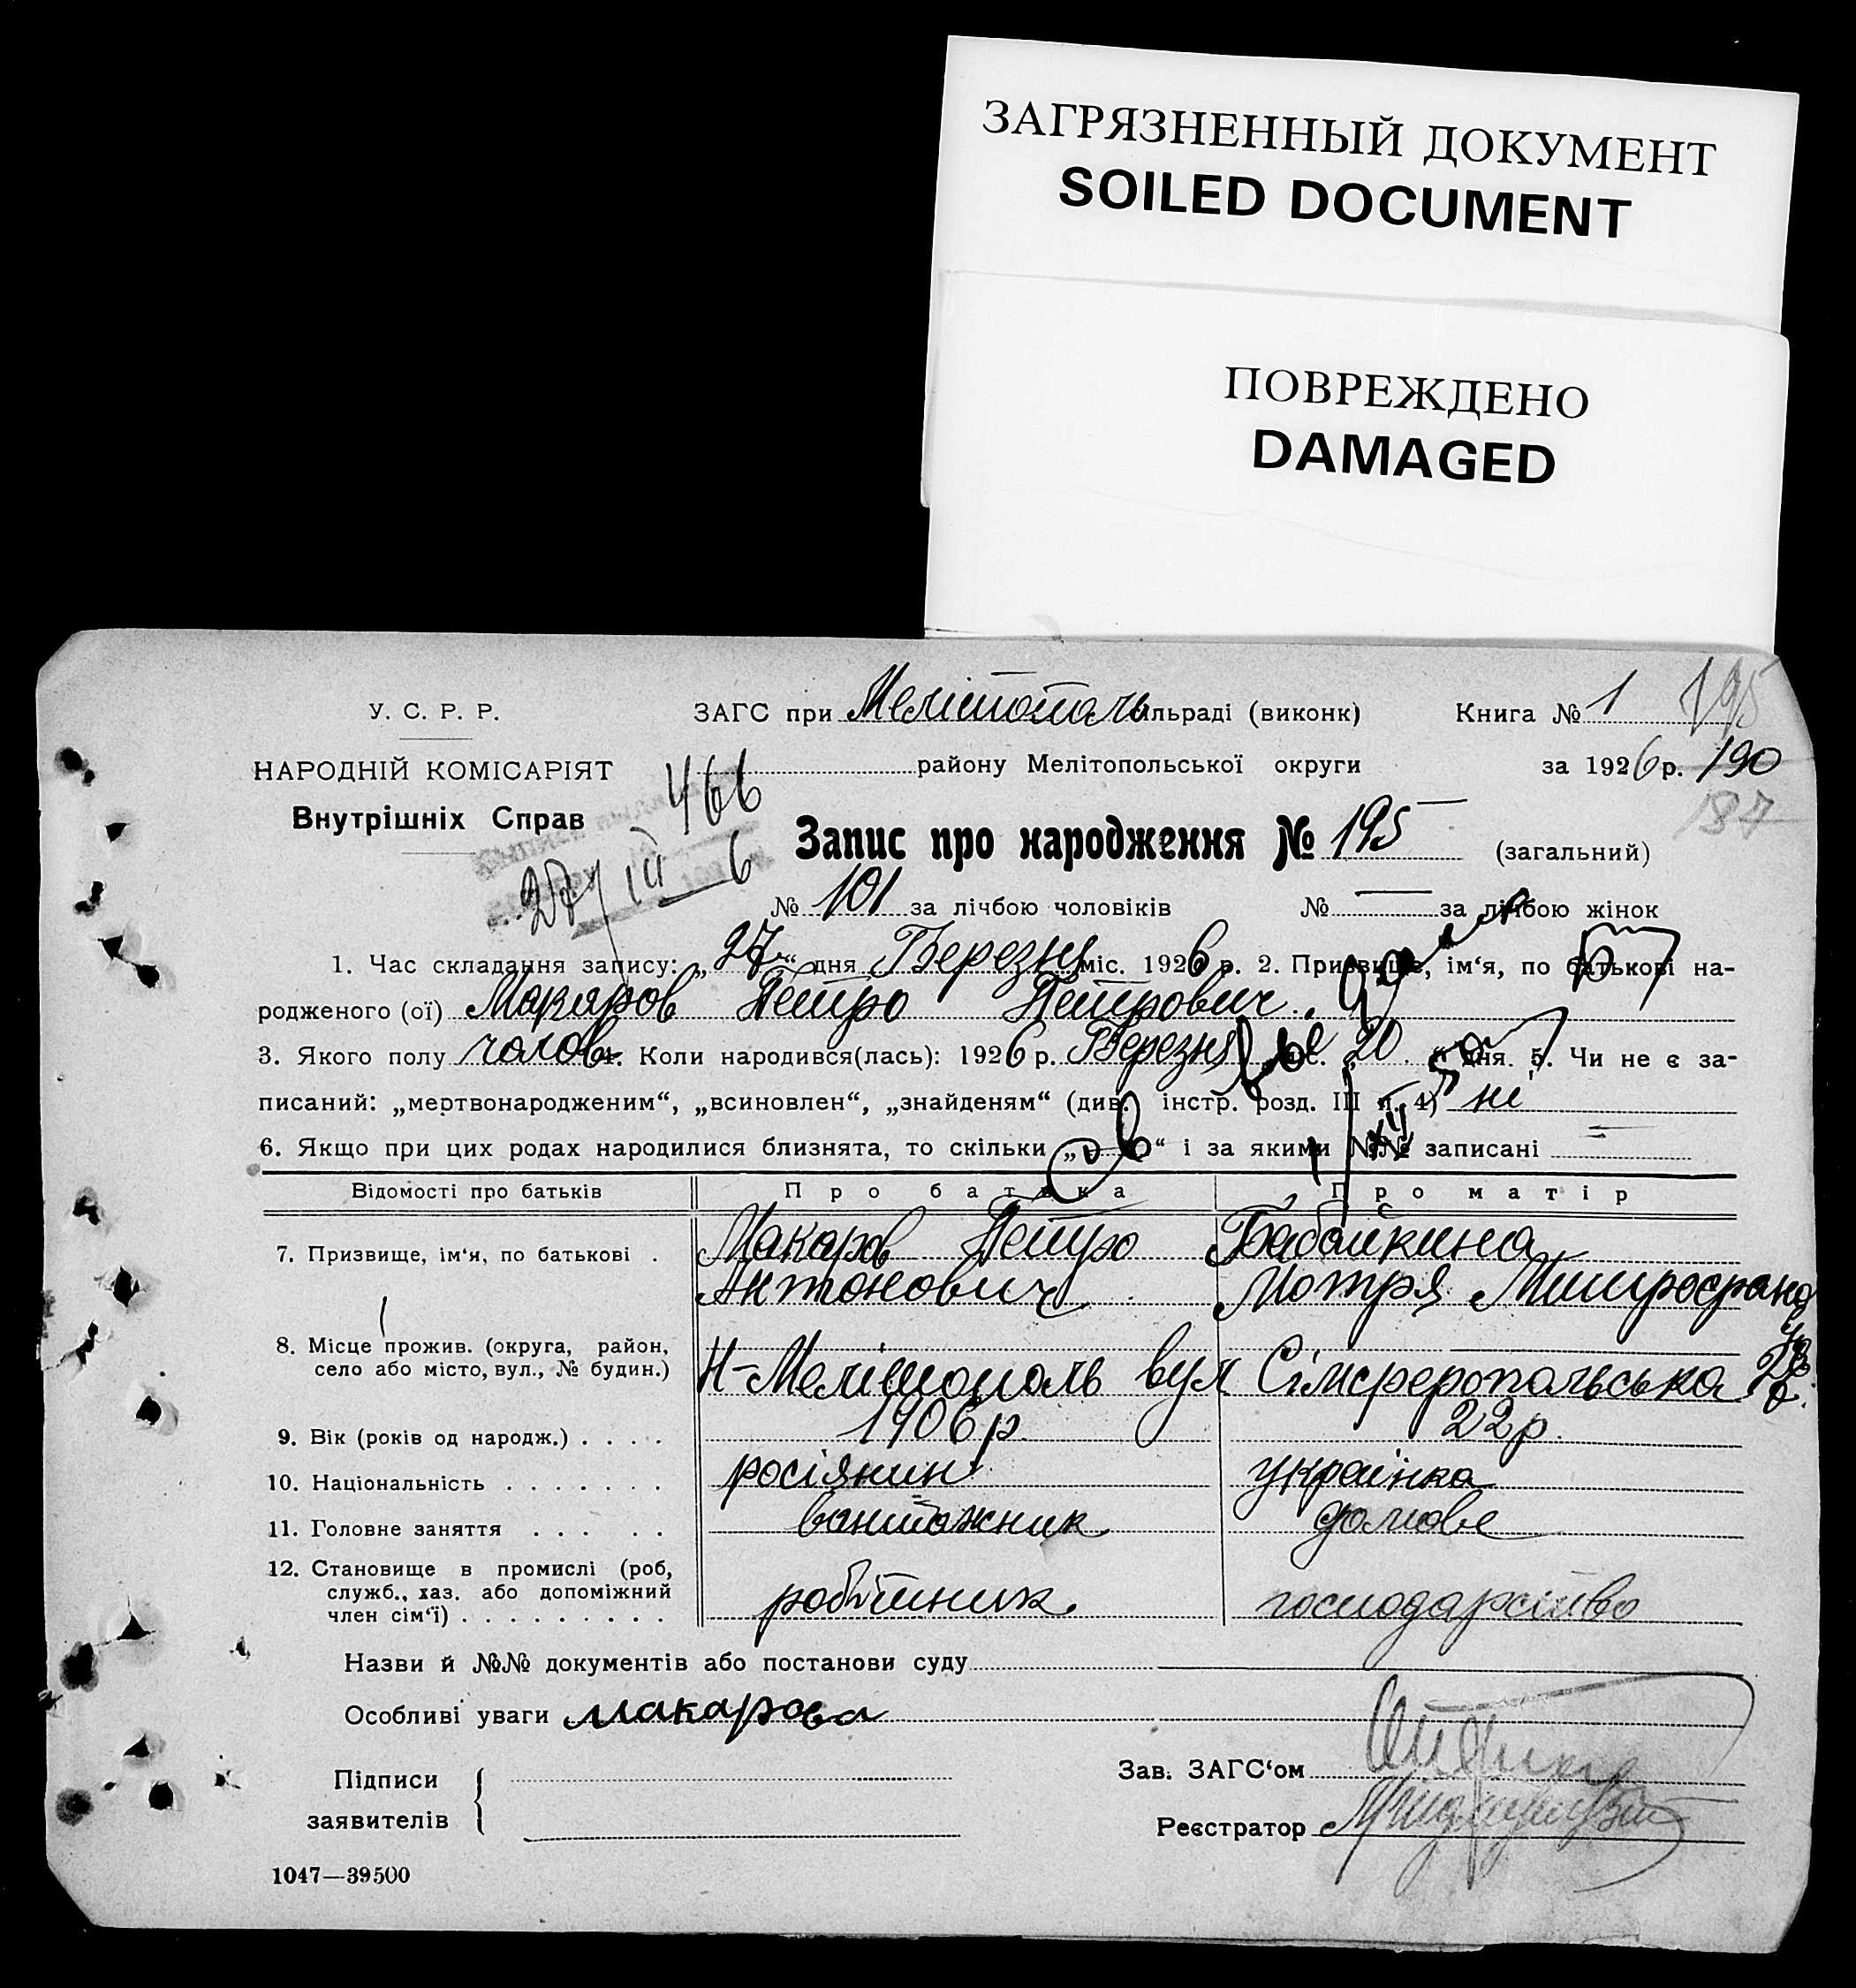 ЗАГРЯЗНЕННЫЙ ДОКУМЕНТ
SOILED DOCUMENT
ПОВРЕЖДЕНО
DAMAGED
У. С. Р. Р.
НАРОДНІЙ КОМІСАРІЯТ
Внутрішніх Справ
466
27/III 6
ЗАГС при Мелітополь ільраді (виконк)
району Мелітопольської округи
Книга № 1 195
за 1926 р. 190
187
Запис про народження № 195 (загальний)
№ 101 за лічбою чоловіків № — за лічбою жінок
1. Час складання запису: „27“ дня Березня міс. 1926 р. 2. Призвище, ім‘я, по батькові на-
родженого (ої) Макаров Петро Петрович.
3. Якого полу чолов 4. Коли народився(лась): 1926 р. Березня міс. „20“ дня. 5. Чи не є за-
писаний: „мертвонародженим“, „всиновлен“, „знайденям“ (див. інстр. розд. III п. 4) ні
6. Якщо при цих родах народилися близнята, то скільки „ “ і за якими №№ записані
Відомості про батьків Про батька Про матір
7. Призвище, ім‘я, по батькові . Макаров Петро Бабайкина
Антонович Мотря
8. Місце прожив. (округа, район,
село або місто, вул., № будин.) Н-Мелітополь вул Сімферопольська
9. Вік (років од народж.) . . . . 1906 р. 22 р.
10. Національність . . . . . . . росіянин українка
11. Головне заняття . . . . . вантажник домове
12. Становище в промислі (роб,
служб., хаз. або допоміжний
член сім‘ї) . . . . . . . . . робітник господарство
Назви й №№ документів або постанови суду
Особливі уваги макарова
Підписи
заявителів
Зав. ЗАГС‘ом
Реєстратор
1047—39500